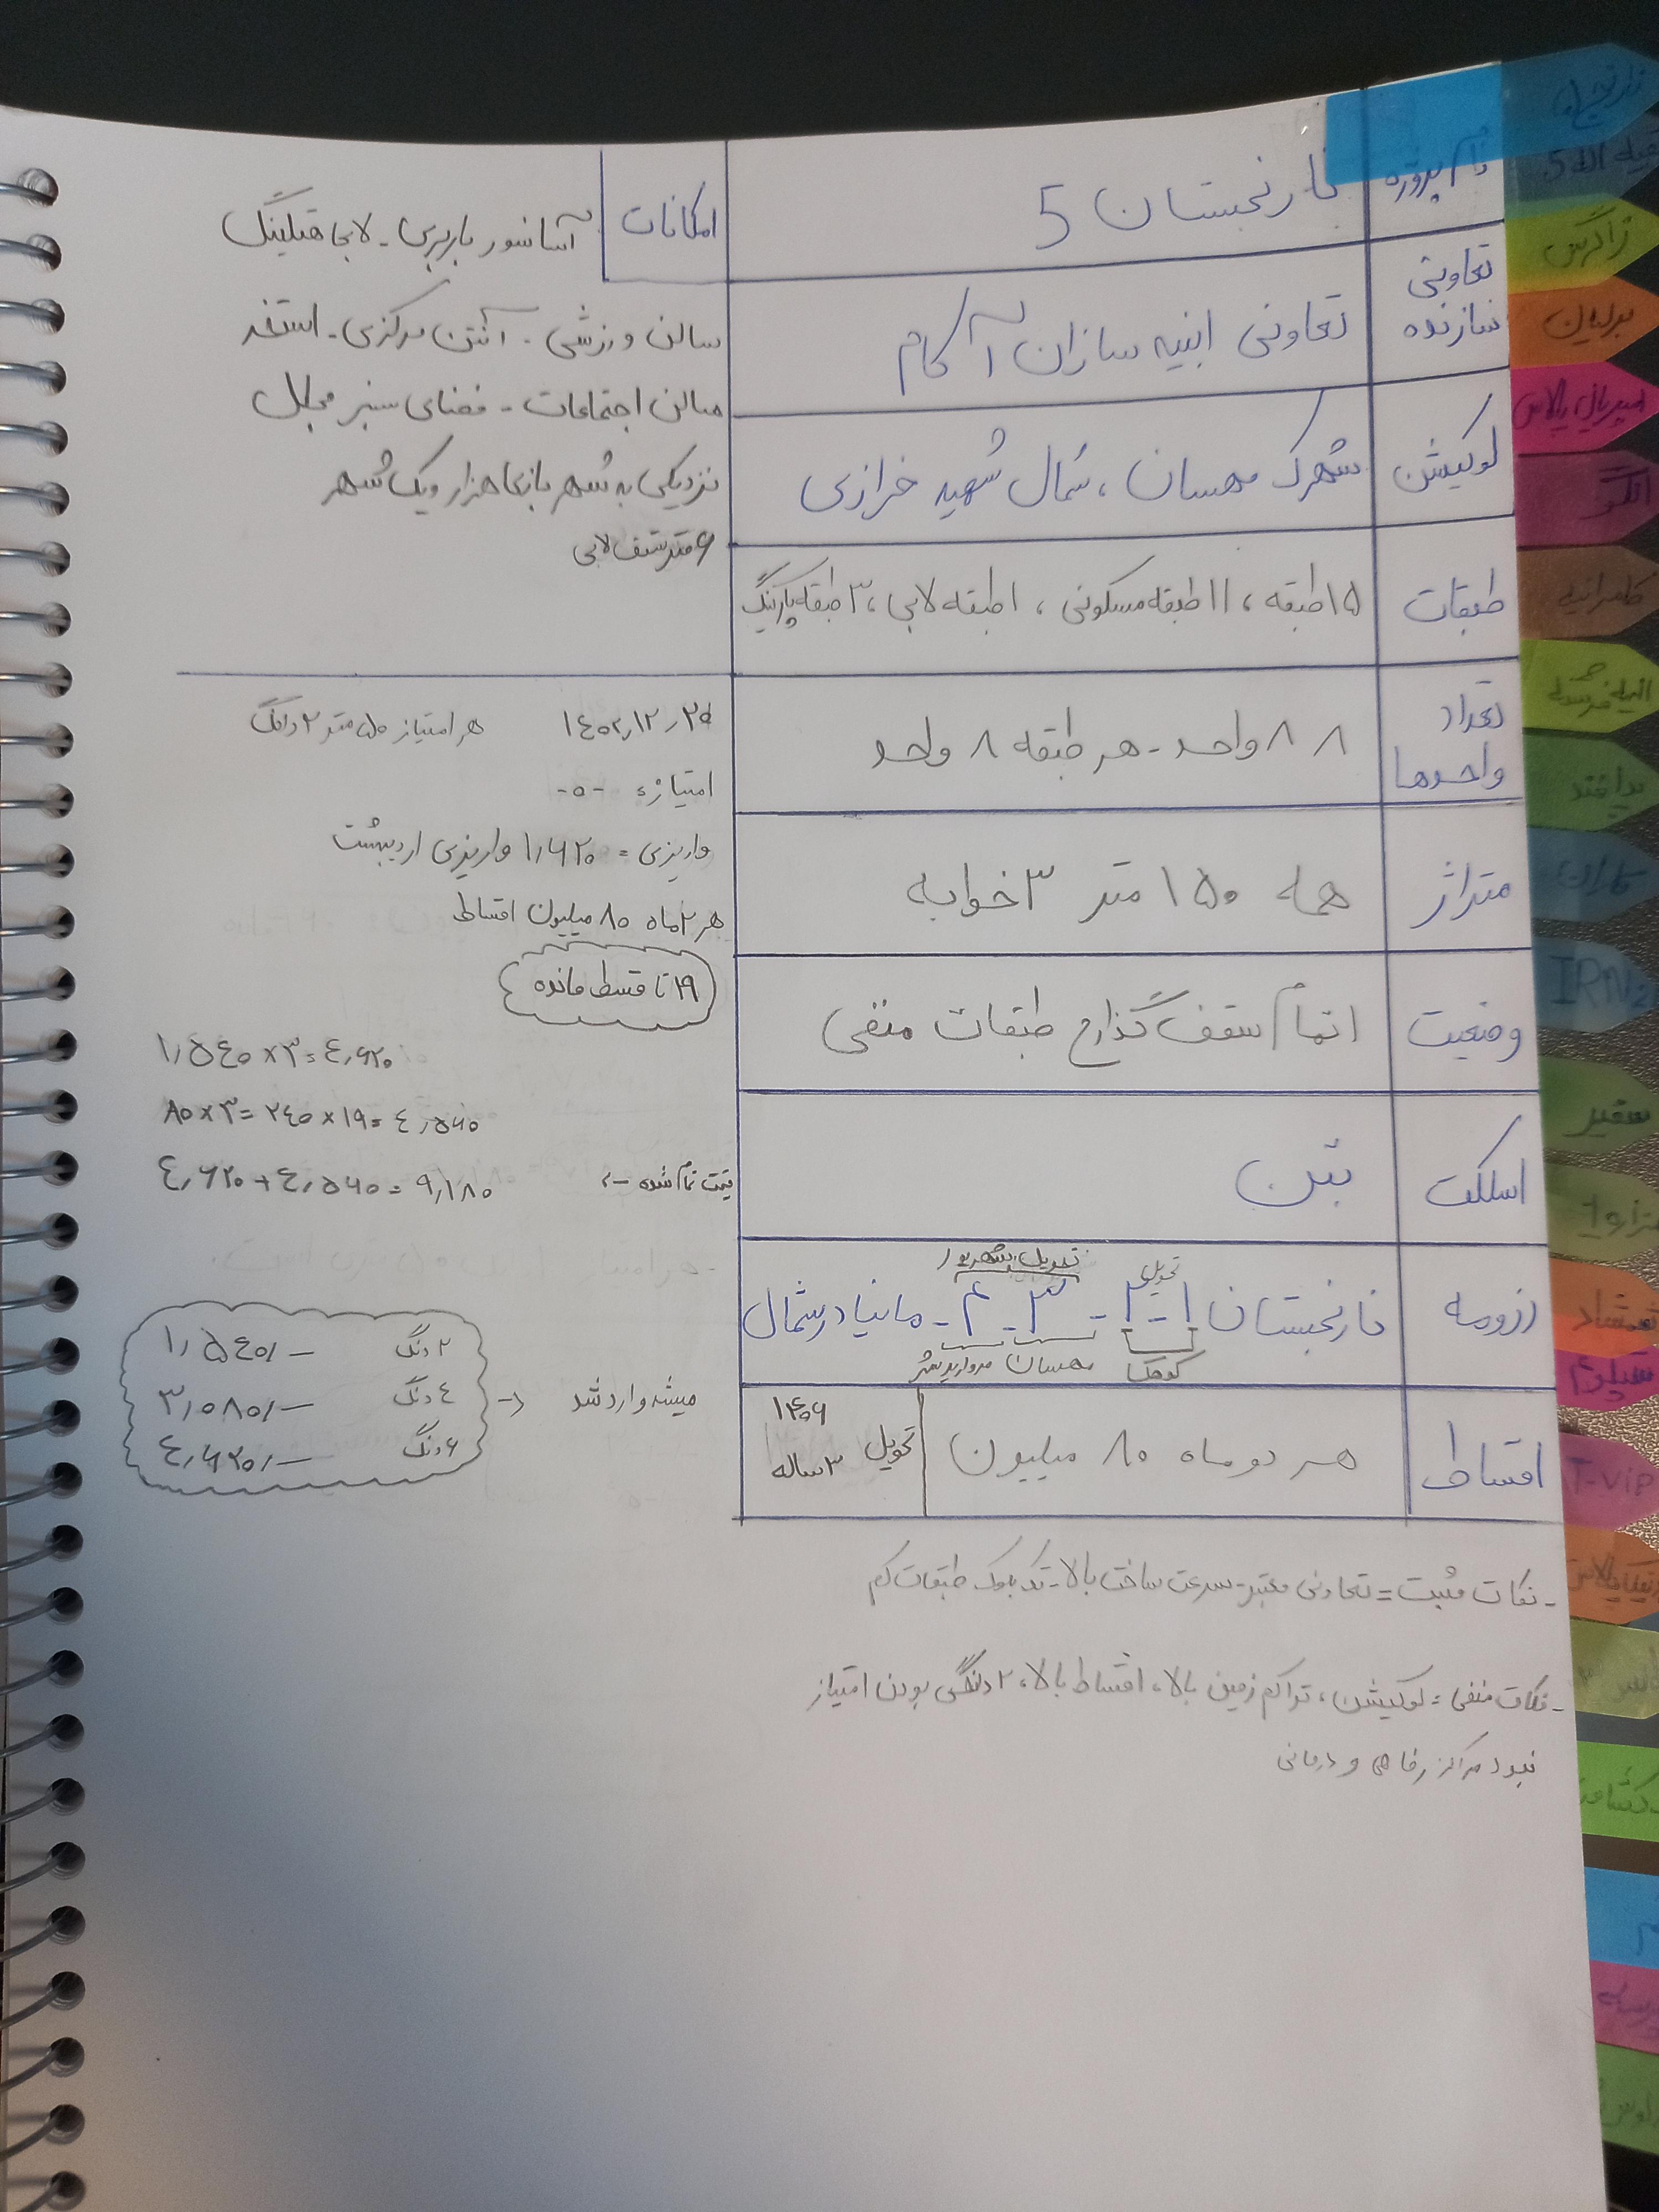 نام پروژه
نارنجستان 5
تعاونی سازنده
تعاونی ابنیه سازان آکام
لوکیشن
شهرک مهسان، شمال شهید خرازی
طبقات
۱۵ طبقه، ۱۱ طبقه مسکونی، ۱ طبقه لابی، ۳ طبقه پارکینگ
تعداد واحدها
۸۸ واحد - هر طبقه ۸ واحد
متراژ
همه ۱۵۰ متر ۳ خوابه
وضعیت
اتمام سقف گذاری طبقات منفی
اسکلت
بتن
رزومه
تحویل تحویل شهریور
نارنجستان ۱-۲ - ۳ - ۴ - مانیا در شمال
کوهک مهسان مروارید شهر
اقساط
هر دو ماه ۸۰ میلیون
تحویل ۳ ساله
۱۴۰۶
- نکات مثبت = تعاونی معتبر - سرعت ساخت بالا - تک بلوک طبقات کم
- نکات منفی = لوکیشن، تراکم زمین بالا، اقساط بالا، ۲ دانگی بودن امتیاز
نبود مراکز رفاهی و درمانی
امکانات
آسانسور باربری - لابی هتلینگ
سالن ورزشی - آنتن مرکزی - استخر
سالن اجتماعات - فضای سبز مجلل
نزدیکی به شهر بازی هزار و یک شهر
۶ متر سقف لابی
۱٤۰۲٫۱۲٫۲۵ هر امتیاز ۵۰ متر ۲ دانگ
امتیاز: -۵۰
واریزی = ۱٫۶۲۰ واریزی اردیبهشت
هر ۲ ماه ۸۰ میلیون اقساط
۱۹ تا قسط مانده
۱٫۵٤۰×۳=٤٫۶۲۰
۸۰×۳=۲٤۰×۱۹=٤٫۵۶۰
قیمت تمام شده -> ٤٫۶۲۰+٤٫۵۶۰=۹٫۱۸۰
میشه وارد شد ->
۲ دنگ ۱٫۵٤۰/-
٤ دنگ ۳٫۰۸۰/-
۶ دنگ ٤٫۶۲۰/-
بقیه الله 5
زاگرس
امپریال پالاس
الگو
کامرانیه
پدافند
IRN2
سفیر
شمشاد
T-ViP